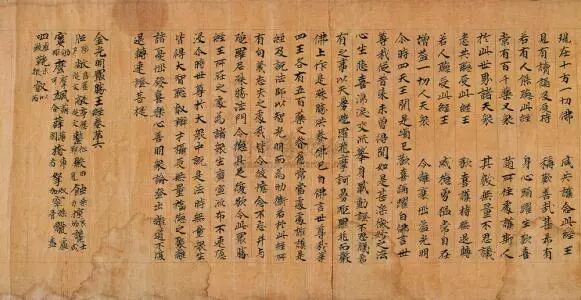 現在十方一切佛　咸共護念此經王
見有讀誦及受持　稱歎善哉甚希有
若有人能聽此經　身心踊躍生歡喜
常有百千藥叉眾　隨所住處護斯人
於此世界諸天眾　其數無量不思議
悉共聽受此經王　歡喜護持無退轉
若人聽受此經王　威德勇猛常自在
增益一切人天眾　令離衰惱益光明
尒時四天王聞是頌已歡喜踊躍白佛言世
尊我從昔來未曾得聞如是甚深微妙之法
心生悲喜涕淚交流舉身戰動證不思議希
有之事以天曼陁羅花摩訶曼陁羅花而散
佛上作是殊勝供養佛已白佛言世尊我等
四王各有五百藥叉眷屬常當處處擁護是
經及說法師以智光明而為助衛若於此經所
有句義忘失之處我皆令彼憶念不忘并與
陁羅尼殊勝法門令得具足復欲令此最勝
經王所在之處為諸眾生廣宣流布不速隱
沒尒時世尊於大眾中說是法時無量眾生
皆得大智聰叡辯才攝受無量福德之聚離
諸憂惱發喜樂心善明眾論登出離道不復
退轉速證菩提
金光明最勝王經卷第六